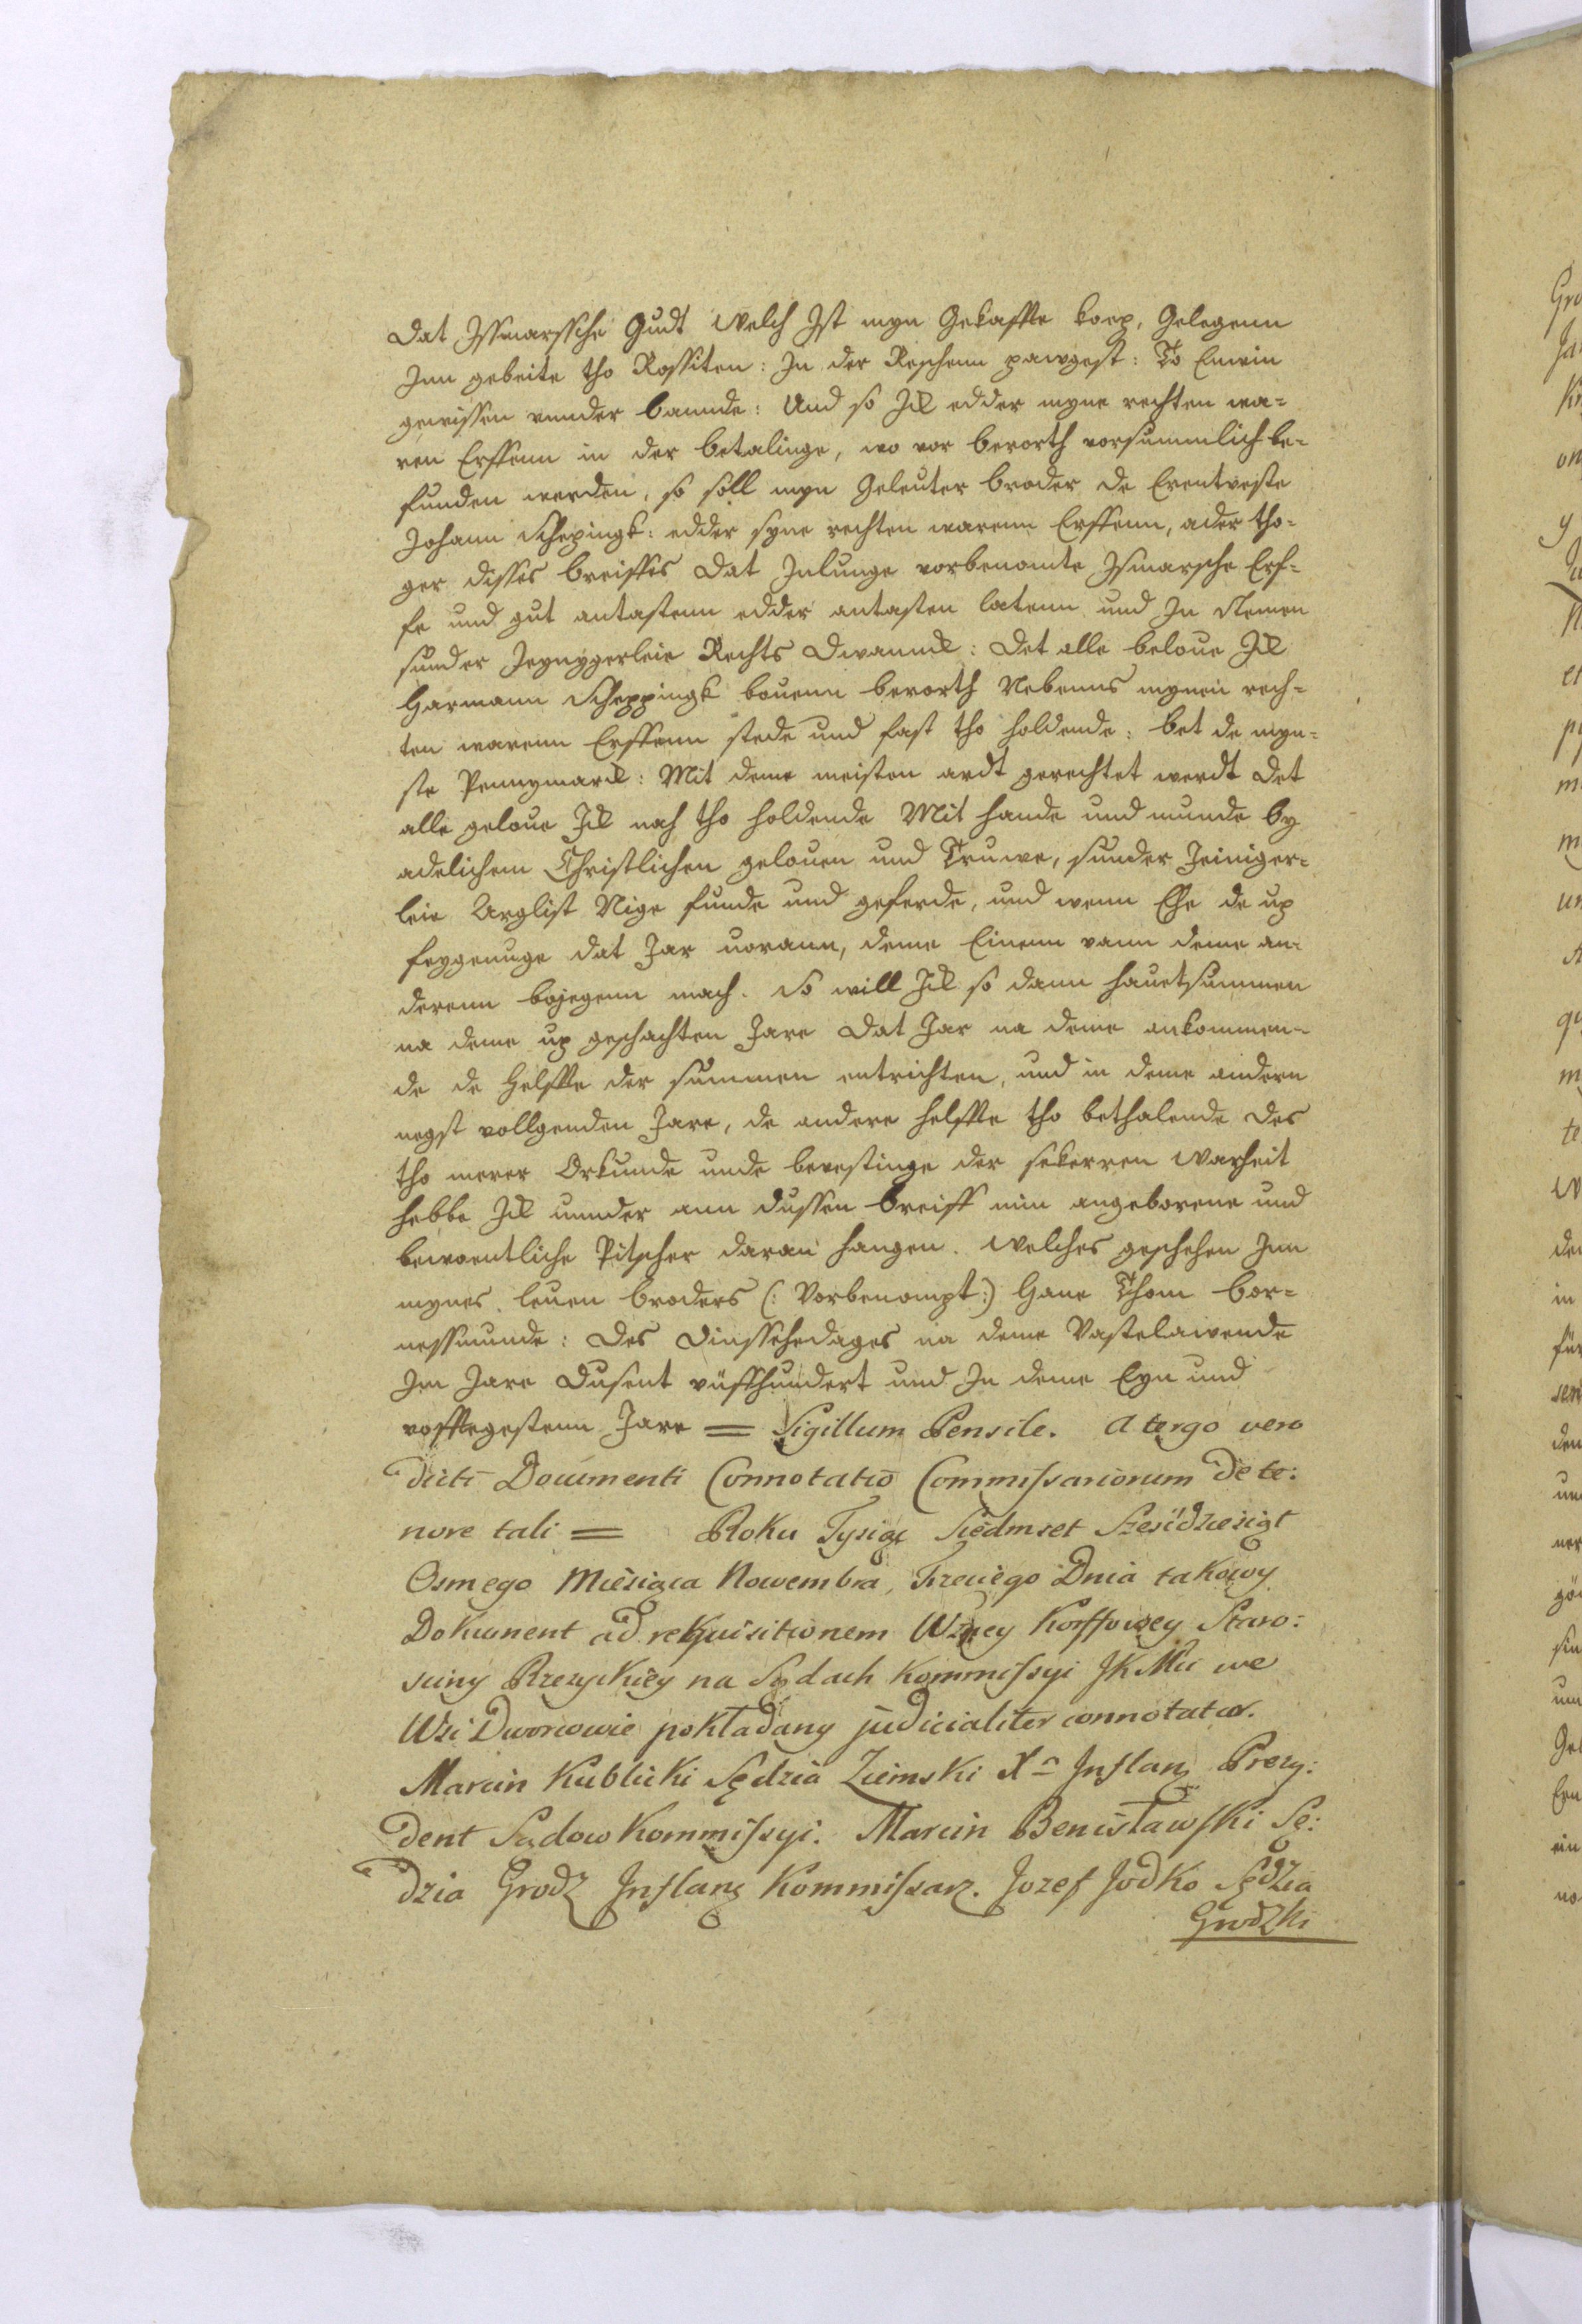 Dat Issmarssche Gudt Welch Ist myn Gekaffte koep, Gelegenn
Inn gebeite tho Rossiten: In der Reschenn pawgest: To Einein
gewissen unnder bannde: Und so Ick edder myne rechten wa-
ren Erffenn in der betalinge, wo vor berorth vorsummlich be-
funden werden, so soll myn Geleuter broder de Erentveste
Johann Schepingk: edder syne rechten warenn Erffenn, ader tho-
ger disses breiffes Dat Inlunge vorbenomte Ismarsche Erf-
fe und gut antastenn edder antasten latenn und In Nemen
sunder Jeynygerleie Rechts Dwannck: Det alle beloue Ick
Harmann Scheppingk bouenn berorth Nebenns mynen rech-
ten warenn Erffenn stede und fast tho holdende: bet de myn-
ste Pennymarck: Mit deme meisten ardt gerechtet werdt Det
alle geloue Ick nach tho holdende Mit hande und munde by
adelichem Christlichen gelouen und Truwe, sunder Jeiniger-
leie Arglist Nige funde und geferde, und wenn Ehe de up
seggenuge dat Jar uorann, deme Einenn vann deme an-
derenn bojegenn mach. So will Ick so dann hauetsummen
na deme up geschachten Jare Dat Jar na deme ankommen-
de de Helffte der summen entrichten, und in deme andern
negst vollgenden Jare, de andere helffte tho bethalende Des
tho merer Orkunde unde bevestinge der sekerren Warheit
hebbe Ick unnder ann dussen breiff min angeborene und
bewoentliche Pitscher daran hangen. Welches geschehen Inn
mynes leuen broders (: Vorbenompt:) Haue Thom bor-
nessmunde: Des Dinsschedages na deme Vastelawende
Im Jare Dusent viiffhundert und In deme Eyn und
vofftegestenn Jare = Sigillum Pensile. A tergo vero
dicti Documenti Connotatio Commissariorum de te:
nore tali = Roku Tysiąc Siedmset Szesidziesiąt
Osmego Miesiąca Nowembra, Trzeciego Dnia takowy
Dokument ad rekquisitionem Wżney Korffowey Staro:
sciny Rzezyckiey na Sądach Kommissyi JKMci we
Wsi Dworcowie pokładany judicialiter connotatur.
Marcin Kublicki Sędzia Ziemski Xa Inflang Prezy:
dent Sądow Kommissyi. Marcin Benisławski Sę:
dzia Grodz Inflang Kommissarz. Jozef Jodko Sędzia
Grodzki